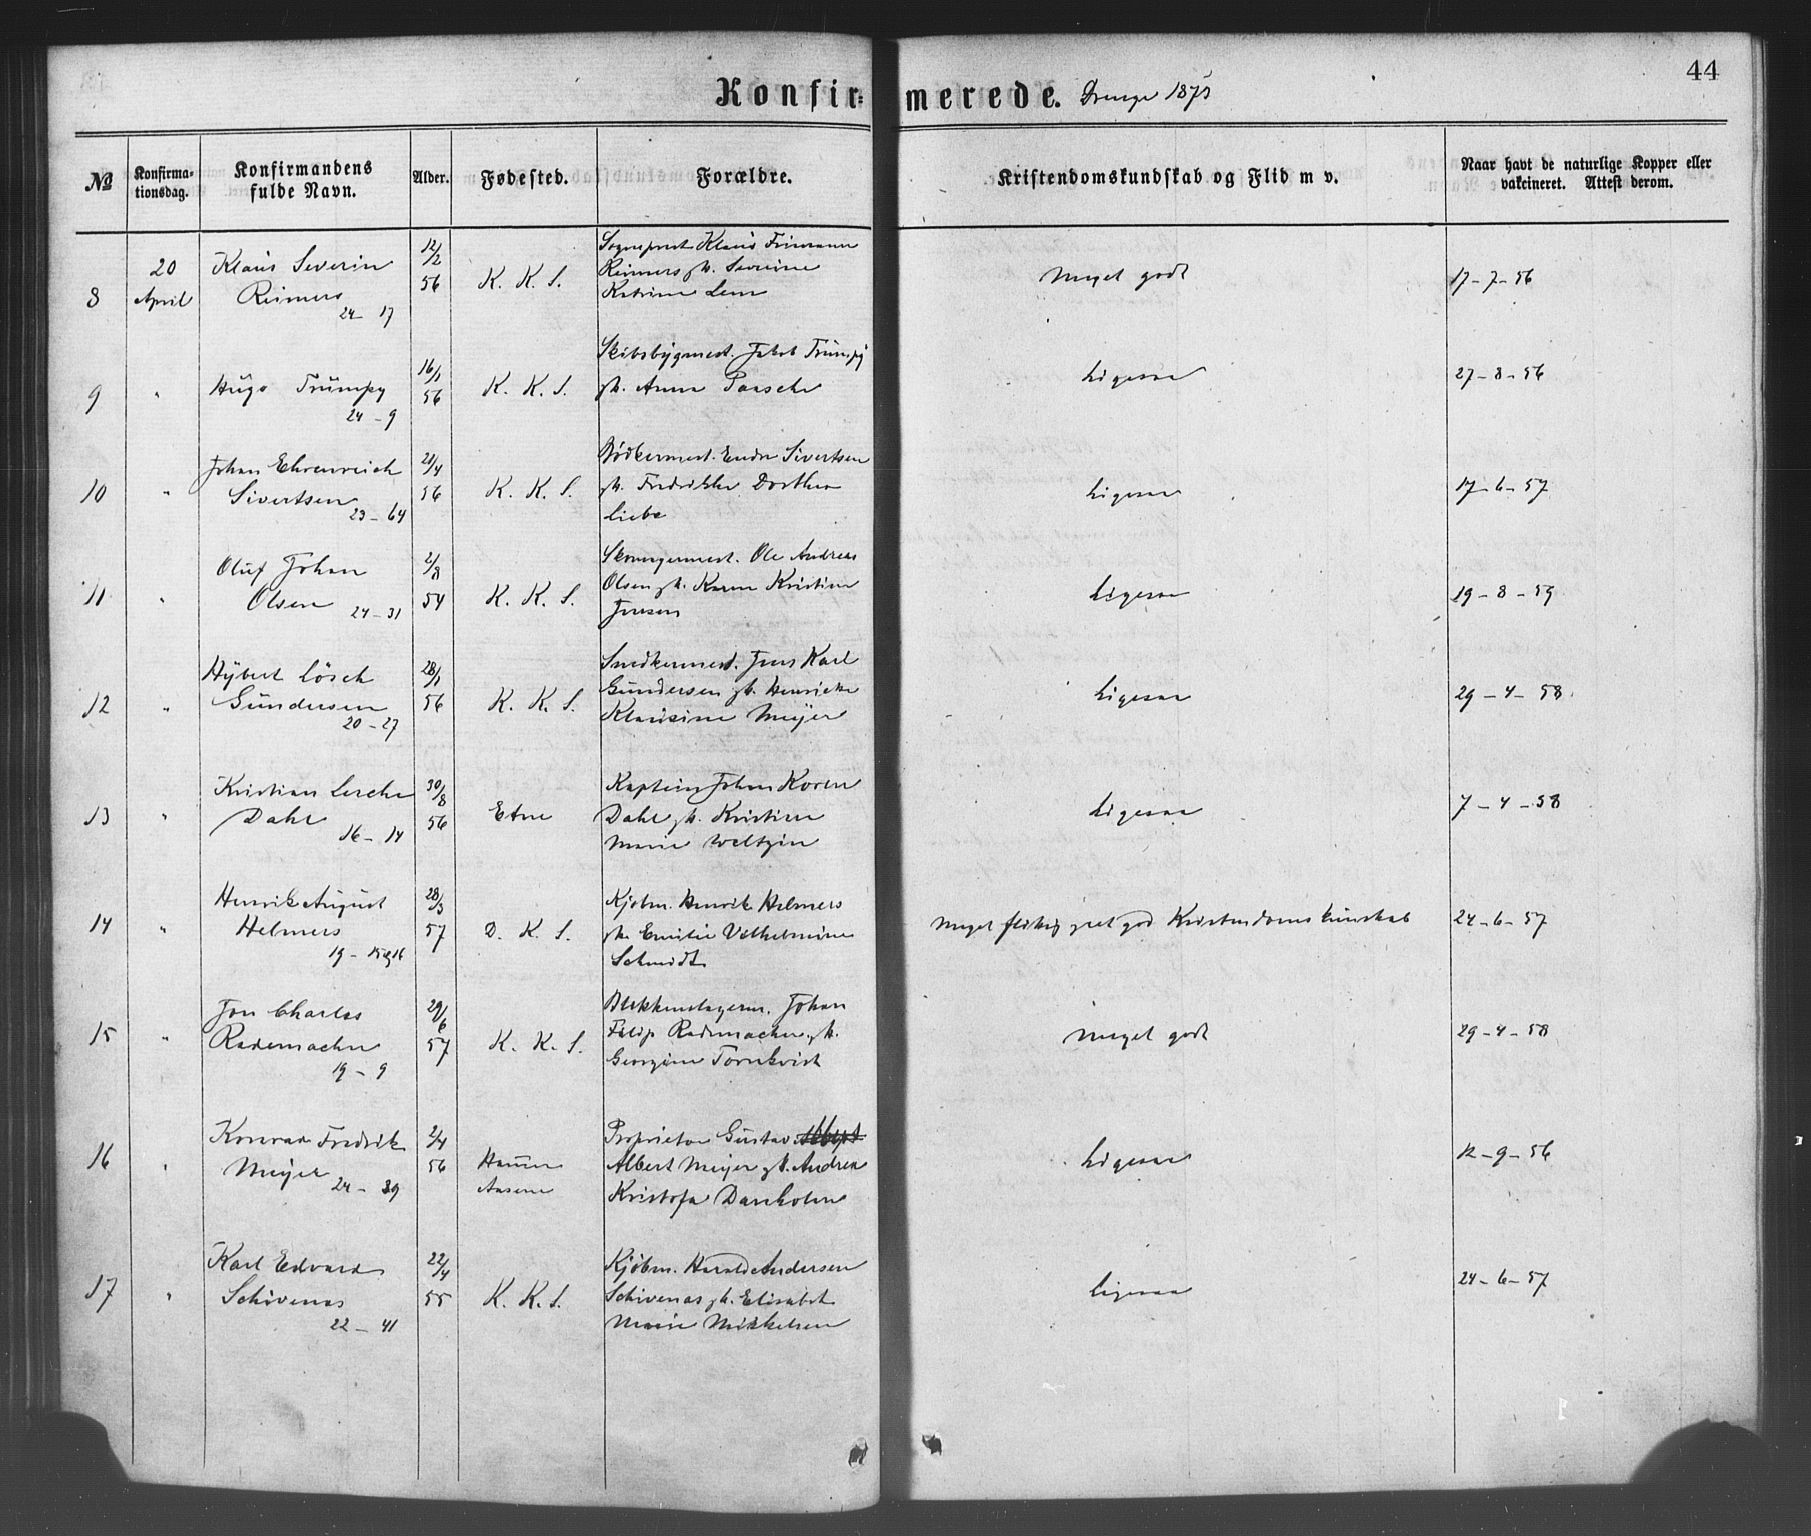 44
Konfirmerede. Drenge 1873
№ Konfirmationsdag. Konfirmandens fulde Navn. Alder. Fødested. Forældre. Kristendomskundskab og Flid m v. Naar havt de naturlige Kopper eller vakcineret. Attest derom.
Sogneprest Klaus Frimann
20 Klaus Severin 12/2 Reimers gh. Severine Meget godt
8 April Reimers 56 K. K. S. Katrine Lem 17-7-56
24 - 17
Skibsbygmest. Jakob Trümpy
9 " Hugo Trümpy 16/1 56 K. K. S. gh. Anna Paasche Ligesaa 27-8-56
24 - 9
Johan Ehrenreich 21/4 Bødkermest. Endre Sivertsen
10 " Sivertsen 56 K. K. S. gh. Fredrikke Dorthea Ligesaa 17-6-57
23 - 64 Liebe
Oluf Johan 2/8 Skomagermest. Ole Andreas
11 " Olsen 54 K. K. S. Olsen gh. Karen Kristine Ligesaa 19-8-59
24 - 31 Jensen
Hybert Lösch 28/1 Snedkermest. Jens Karl
12 " Gundersen 56 K. K. S. Gundersen gh. Henrikke Ligesaa 29-4-58
20 - 27 Klausine Meyer
Kristian Lerche 30/8 Kaptein Johan Koren
13 " Dahl 56 Etne Dahl gh. Kristine Ligesaa 7-4-58
16 - 14 Marie Weltzin
Henrik August 28/3 Kjøbm. Henrik Helmers
14 " Helmers 57 D. K. S. gh. Emilie Vilhelmine Meget flittig god Kristendomskundskab 24-6-57
19 - 15 og 16 Schmidt
Jon Charles 29/6 Blikkenslagerm. Johan
15 " Rademacher 57 K. K. S. Filip Rademacher gh. Meget godt 29-4-58
19 - 9 Georgine Tornkvist
Konrad Fredrik 2/4 Proprietær Gustav
16 " Meyer 56 Albert Meyer gh. Andrea Ligesaa 12-9-56
24 - 39 Kristofa Danholm
Karl Edvard 22/4 Kjøbm. Harald Andersen
17 " Schivenas 55 K. K. S. Schivenas gh. Elisabet Ligesaa 24-6-57
22 - 41 Marie Mikkelsen